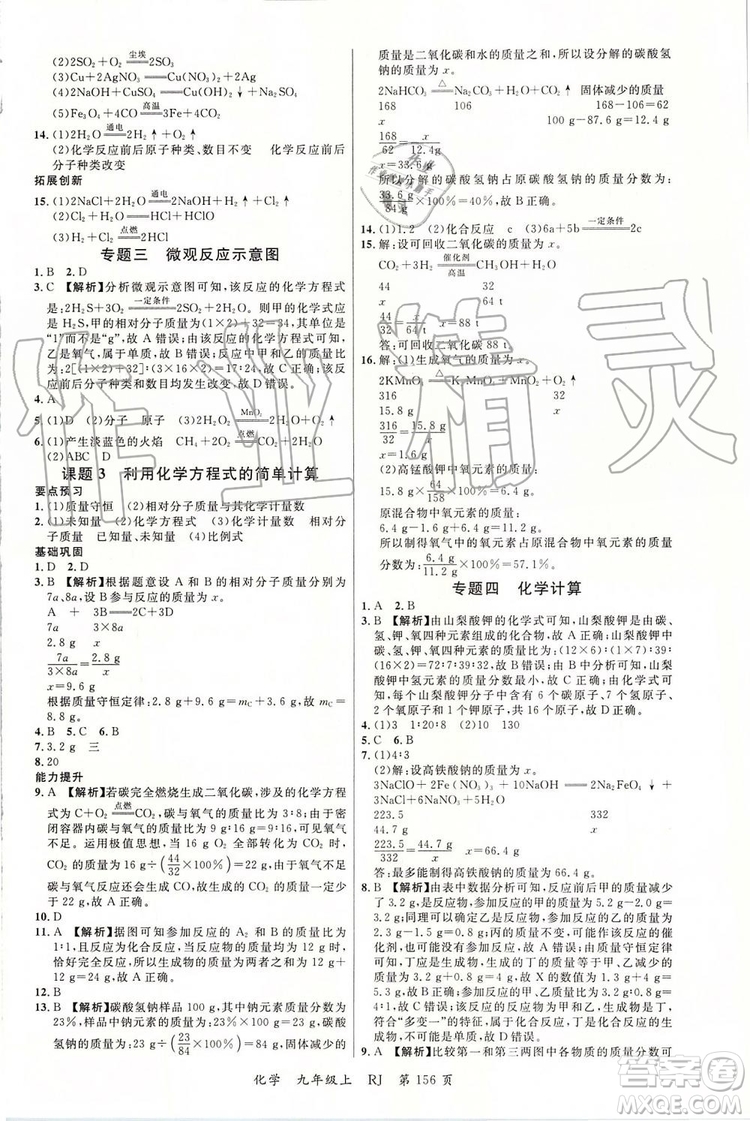 (2)2SO₂+O₂ ═尘埃═ 2SO₃
(3)Cu+2AgNO₃═Cu(NO₃)₂+2Ag
(4)2NaOH+CuSO₄═Cu(OH)₂↓+Na₂SO₄
(5)Fe₃O₄+4CO ═高温═ 3Fe+4CO₂
14. (1)2H₂O ═通电═ 2H₂↑+O₂↑
(2)化学反应前后原子种类、数目不变 化学反应前后分
子种类改变
拓展创新
15. (1)2NaCl+2H₂O ═通电═ 2NaOH+H₂↑+Cl₂↑
(2)Cl₂+H₂O═HCl+HClO
(3)H₂+Cl₂ ═点燃═ 2HCl
专题三 微观反应示意图
1. B 2. D
3. C 【解析】分析微观示意图可知,该反应的化学方程式
是:2H₂S+3O₂ ═一定条件═ 2SO₂+2H₂O。则甲的化学式应
是H₂S,其相对分子质量为(1×2)+32=34,其单位是
“1”而不是“g”,故A错误;由该反应的化学方程式可知
乙是氧气,属于单质,故B错误;反应中甲和乙的质量比
为:2[(1×2)+32]:(3×16×2)=17:24,故C正确;该反应
前后分子种类和数目均发生改变。故D错误。
4. A
5. (1)D (2)分子 原子 (3)2H₂O₂ ═MnO₂═ 2H₂O+O₂↑
6. (1)产生淡蓝色的火焰 CH₄+2O₂ ═点燃═ CO₂+2H₂O
(2)ABC D
课题3 利用化学方程式的简单计算
要点预习
1. (1)质量守恒 (2)相对分子质量与其化学计量数
2. (1)未知量 (2)化学方程式 化学计量数 相对分
子质量 已知量、未知量 (4)比例式
基础巩固
1. D 2. D
3. B 【解析】根据题意设A和B的相对分子质量分别为
7a、8a,设B参与反应的质量为x。
A + 3B═2C+3D
7a 3×8a
2.8 g x
7a/3×8a=2.8 g/x
x=9.6 g
根据质量守恒定律:2.8 g+9.6 g=m_C+3.6 g,故m_C=
8.8 g。
4. B 5. C 6. B
7. 3.2 g 三
8. 20
能力提升
9. A 【解析】若碳完全燃烧生成二氧化碳,涉及的化学方程
式为C+O₂ ═点燃═ CO₂,碳与氧气的质量比为3:8;由于密
闭容器内碳与氧气的质量比为9 g:16 g=9:16,故氧气可能
不足。运用极值思想,当碳与氧气恰好完全反应时,生成
CO₂的质量为16 g÷(32/44×100%)=22 g,由于氧气不足
碳与氧气反应还会生成CO。故生成CO₂的质量一定少
于22 g,故A正确。
10. D
11. A 【解析】据图可知参加反应的A₂和B₂的质量比为
1:1,且该反应为化合反应,故生成物的质量为12 g时,
恰好完全反应,所以生成物的质量=12 g+12 g=24 g,
12 g+12 g=24 g,故A正确。
12. B
13. B 【解析】碳酸氢钠样品100 g,其中钠元素质量分数为
23%,样品中钠元素的质量=100 g×23%=23 g,碳酸
氢钠的质量为:23 g÷(23/84×100%)=84 g,固体减少的
质量是二氧化碳和水的质量之和,所以设分解的碳酸氢
钠的质量为x。
2NaHCO₃ ═△═ Na₂CO₃+H₂O+CO₂↑ 固体减少的质量
168 106 168-106=62
x 100 g-87.6 g=12.4 g
168/62=x/12.4 g
x=33.6 g
所以分解的碳酸氢钠占原碳酸氢钠的质量分数为
33.6 g/84 g×100%=40%,故B正确。
14. (1)1.2 (2)化合反应 c (3)6a+5b ═一定条件═ 2c
15. 解:设可回收二氧化碳的质量为x。
CO₂+3H₂ ═催化剂/高温═ CH₃OH+H₂O
44 32
x 64 t
44/32=x/64 t
x=88 t
答:可回收二氧化碳88 t。
16. 解:(1)生成氧气的质量为6.4 g。
2KMnO₄ ═△═ K₂MnO₄+MnO₂+O₂↑
316 32
15.8 g x
316/32=15.8 g/x
x=1.6 g
(2)高锰酸钾中氧元素的质量:
15.8 g×64/158×100%=6.4 g
原混合物中氧元素的质量为:
6.4 g-1.6 g+6.4 g=11.2 g。
所以制得氧气中氧元素占原混合物中氧元素的质量分数
=6.4 g/11.2 g×100%=57.1%。
专题四 化学计算
1. A 2. B
3. B 【解析】由山梨酸钾的化学式可知,山梨酸钾由碳、
氢、钾、氧四种元素组成的化合物,故A正确;山梨酸钾中
碳、氢、钾、氧四种元素的质量比=(12×6):(1×7):39:
(16×2)=72:7:39:32,故B错误;由B中分析可知,山梨
酸钾中氢元素的质量分数最小,故C正确;由山梨酸钾的
化学式可知,每个山梨酸钾分子中含有6个碳原子、7个
氢原子、1个钾原子和2个氧原子,故D正确。
4. (1)3 1:20:8 (2)10 130
5. C 6. B
7. (1)4:3
(2)解:设高铁酸钠的质量为x。
3NaClO+2Fe(NO₃)₃+10NaOH═2Na₂FeO₄↓+
3NaCl+6NaNO₃+5H₂O
223.5 332
44.7 g x
223.5/332=44.7 g/x
x=66.4 g
答:最多能制得高铁酸钠的质量为66.4 g。
8. B 【解析】由表中数据分析可知,反应前后甲的质量减少
了3.2 g,故甲是反应物,参加反应的质量为6.4 g-3.2 g
=3.2 g;同理可以确定乙是反应物,参加反应的质量为
2.8 g;丁是生成物;丙的质量不变,可能作该反应的催化
剂,也可能不参与反应,故A错误;由质量守恒定律可知,
生成的丁的质量应等于参加反应的甲、乙质量之和,则x
的数值为3.2 g+2.8 g+1.2 g=7.2 g,故B正确;丁是
生成物,其质量等于参加反应的甲、乙质量之和,故丁一
定是化合物,故C错误;该反应的反应物为甲、乙,生成物
是丁,符合“多变一”的特征,属于化合反应,故D错误。
9. A 【解析】比较第一和第三两图中各成分的质量分数可
化学 九年级上 RJ 第 156 页
作业精灵